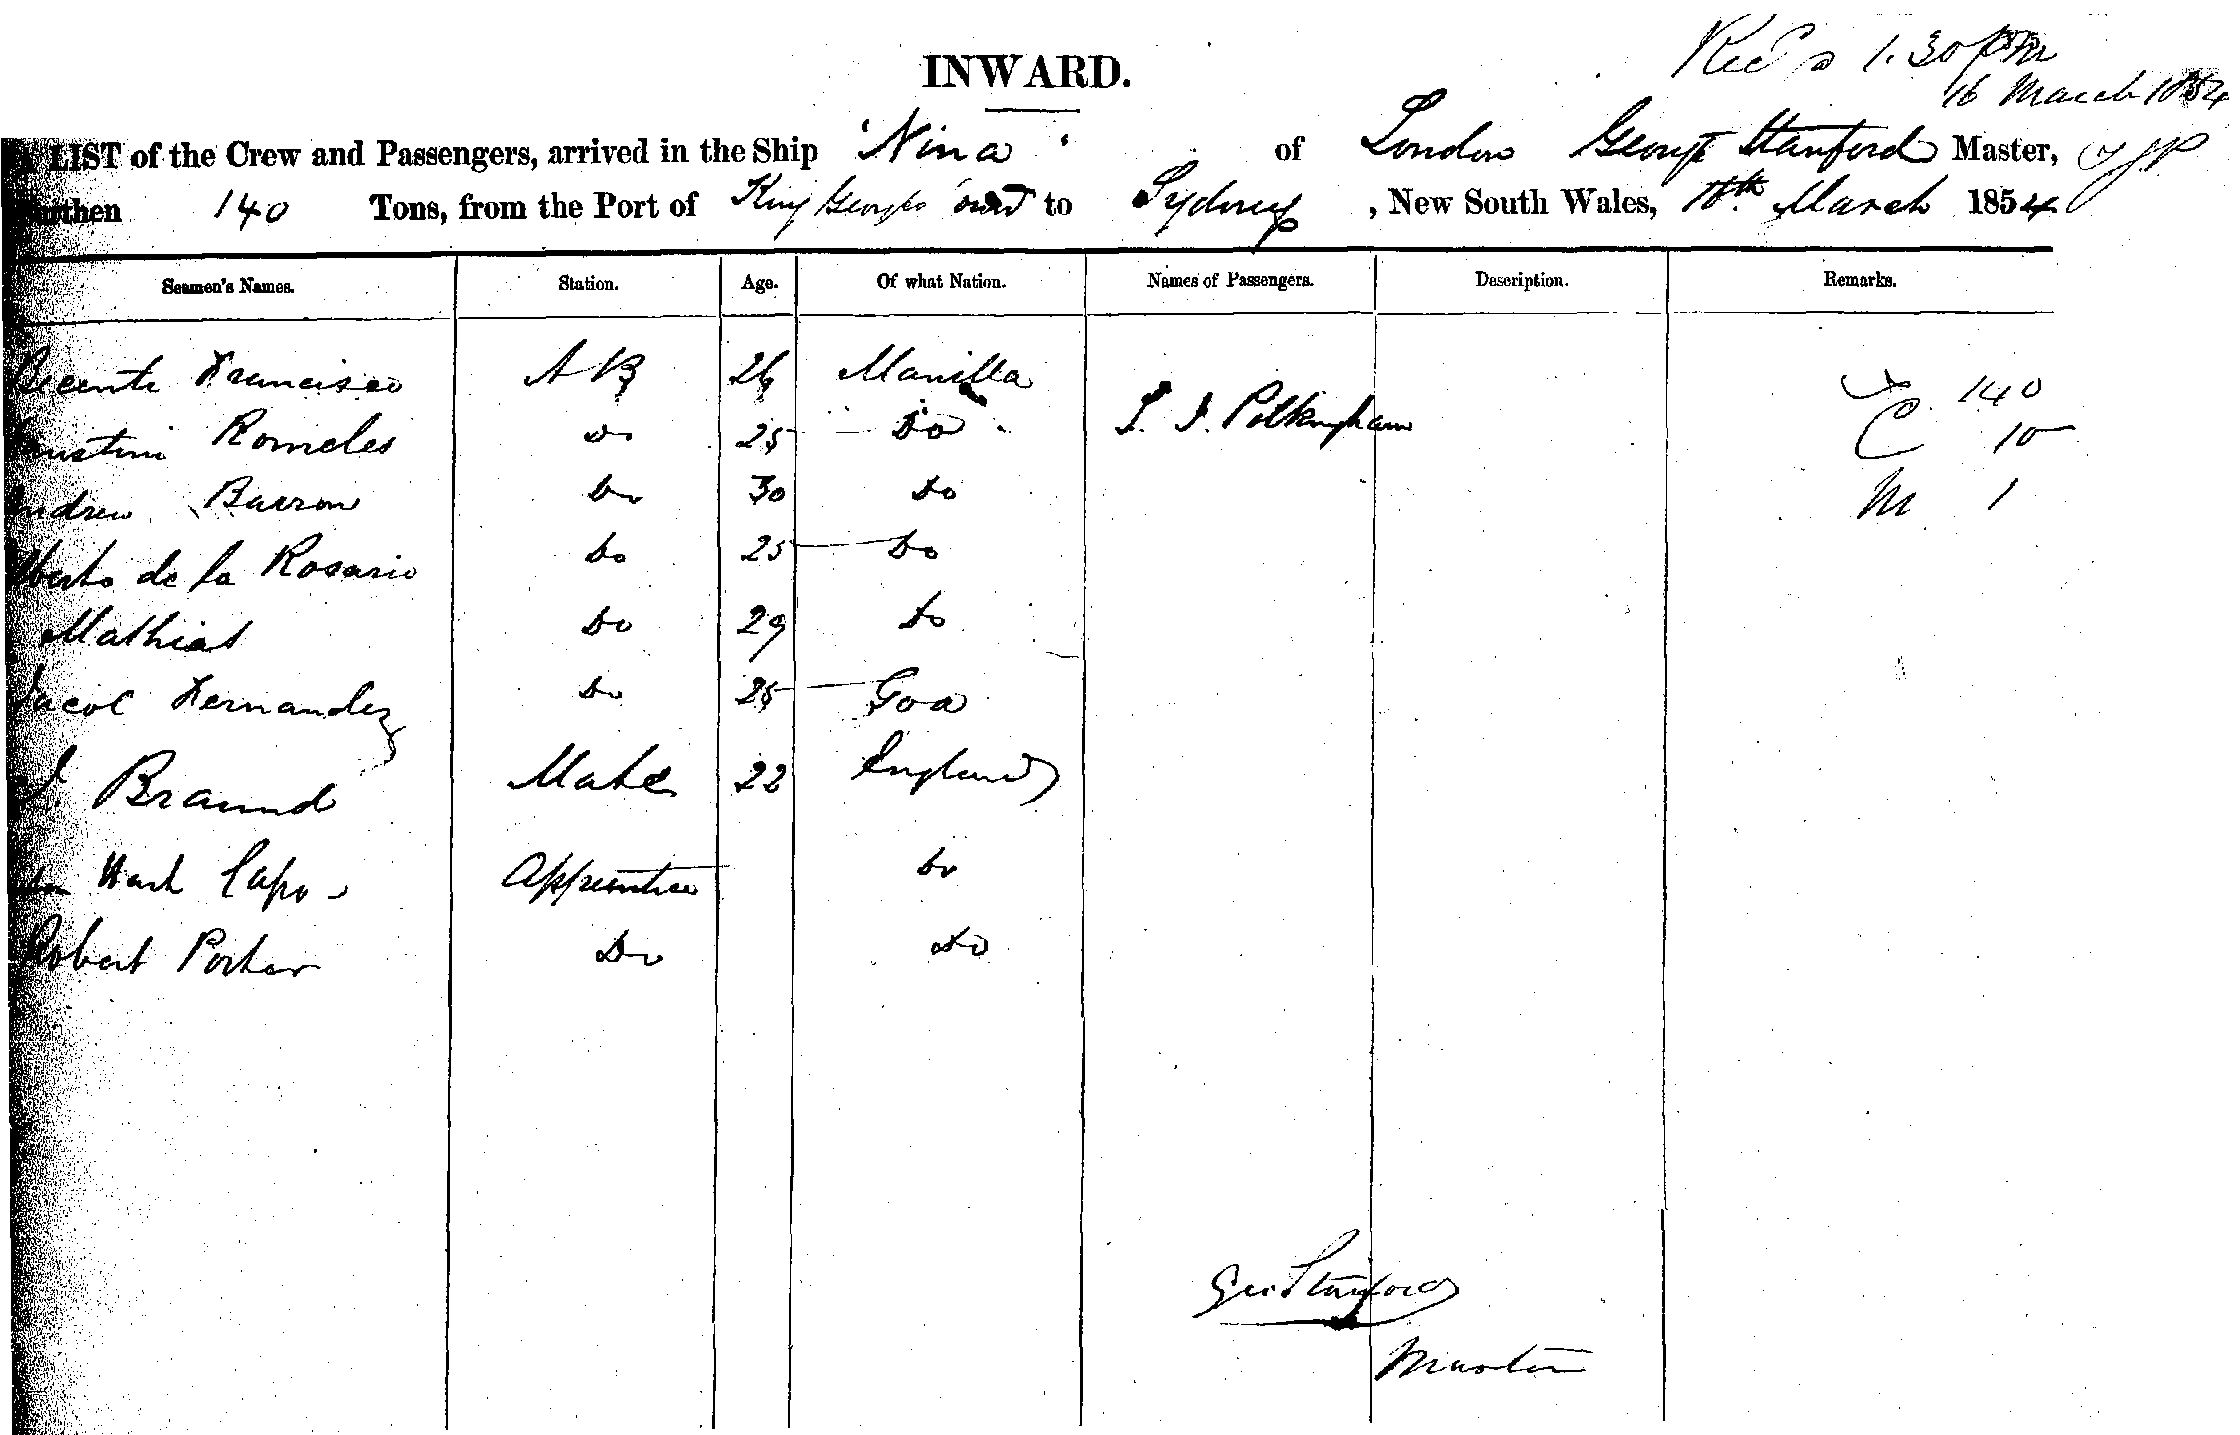 Rec'd 1.30 PM
16 March 1854
INWARD.
LIST of the Crew and Passengers, arrived in the Ship 'Nina' of London George Stanford Master,
140 Tons, from the Port of King Georges to Sydney, New South Wales, March 1854
Seamen's Names. Station. Age. Of what Nation. Names of Passengers. Description. Remarks.
Francisco A B 26 Manilla 140
Romeles Do 25 Do Polkingham C 10
Andrew Barron Do 30 Do M 1
de la Rosario Do 25 Do
Mathias Do 29 Do
Jacob Fernandez Do 25 Goa
Braund Mate 22 England
Apprentice Do
Robert Porter Do Do
Geo Stanford
Master